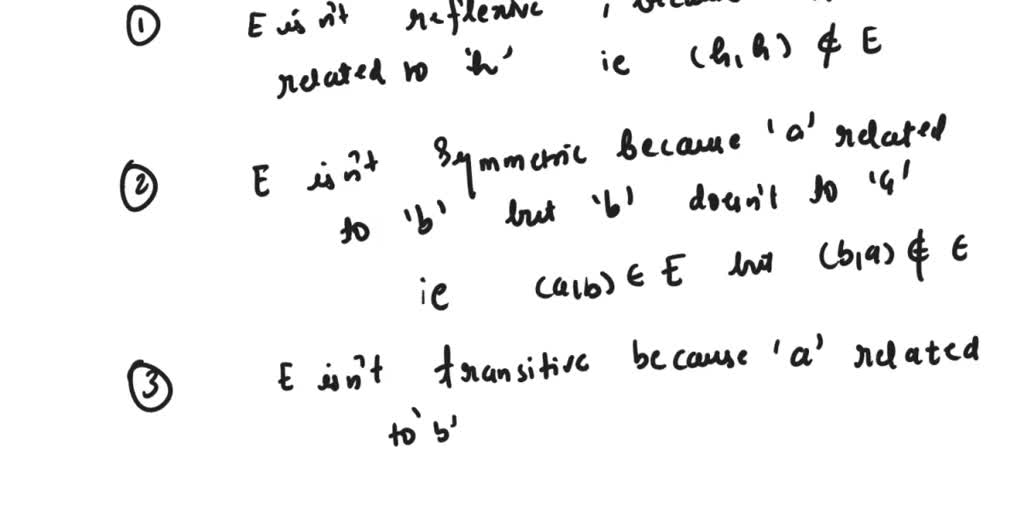 ① E isn't reflexive , because
related to 'h' ie (h,h) ∉ E
② E isn't Symmetric because 'a' related
to 'b' but 'b' doesn't to 'a'
ie (a,b) ∈ E but (b,a) ∉ E
③ E isn't transitive because 'a' related
to 'b'